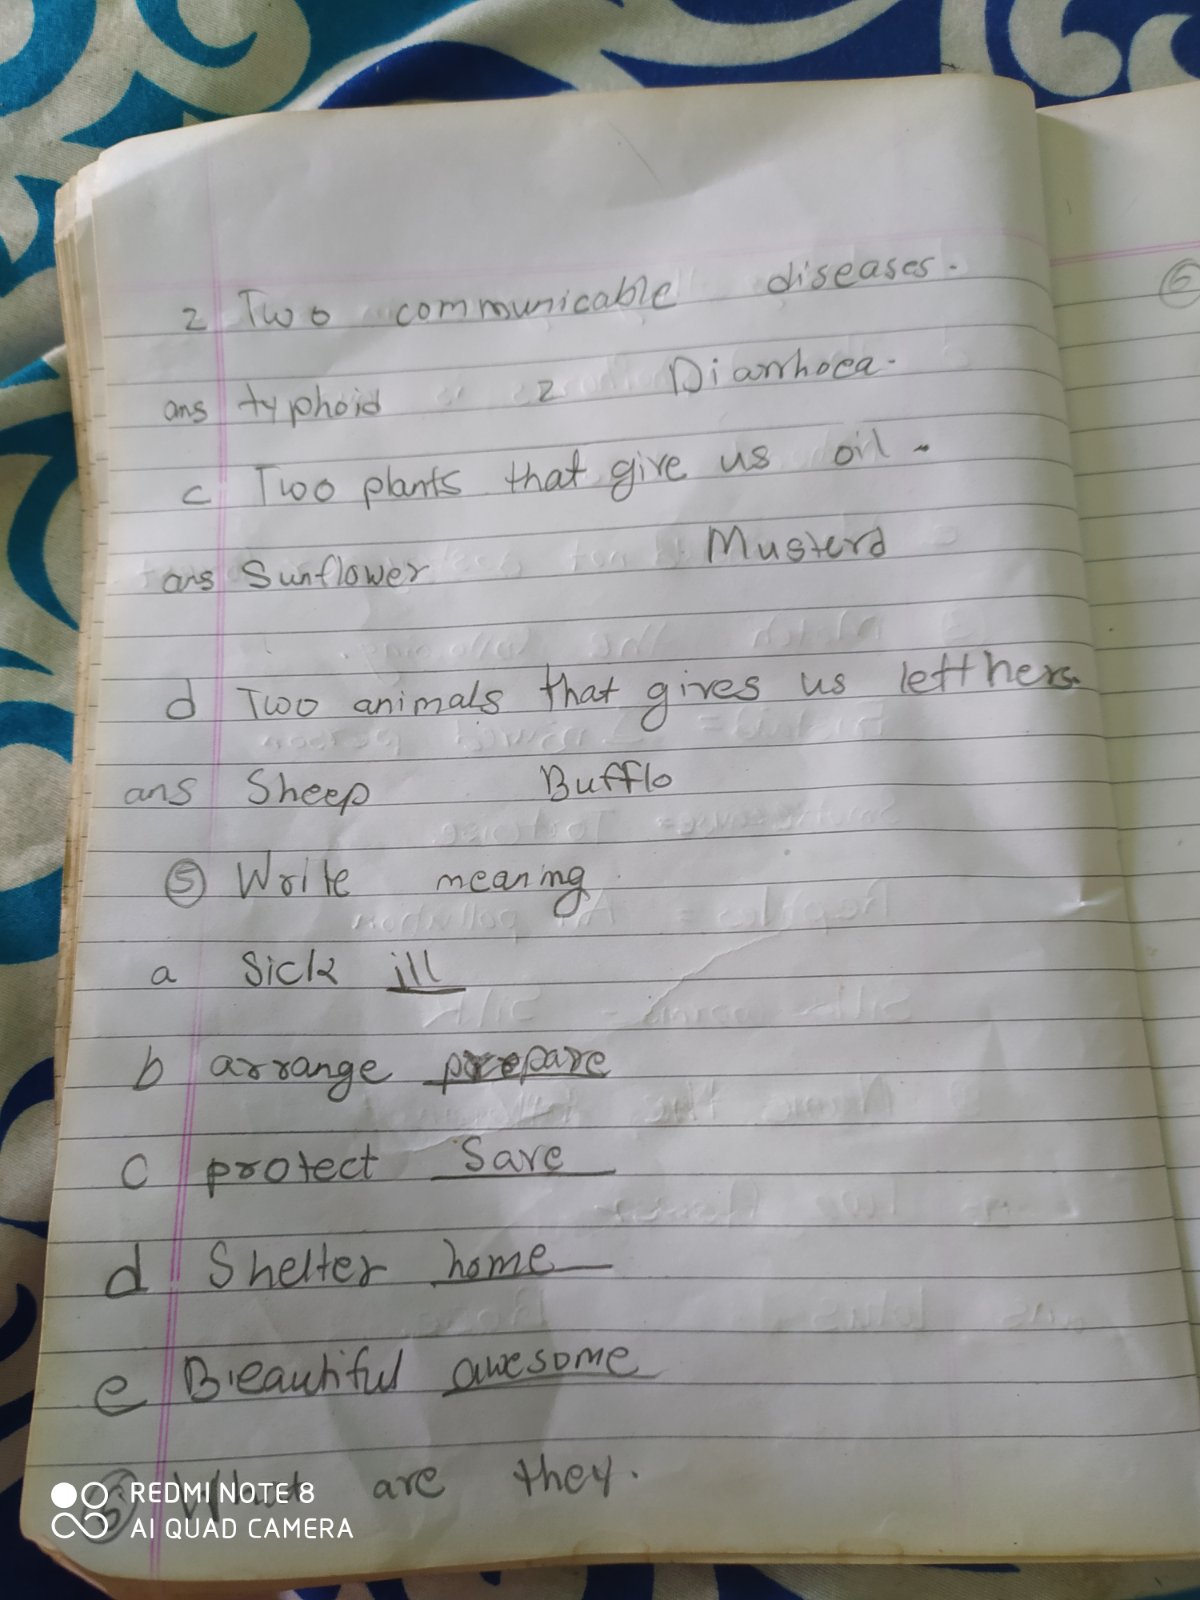 2 Two communicable diseases.
ans typhoid 2 Diarrhoea.
c Two plants that give us oil.
ans Sunflower Musterd
d Two animals that gives us letthers.
ans Sheep Bufflo
5 Write meaning
a Sick ill
b arrange prepare
c protect Save
d Shelter home
e Bieautiful awesome
6 What are they.
6
REDMI NOTE 8
AI QUAD CAMERA